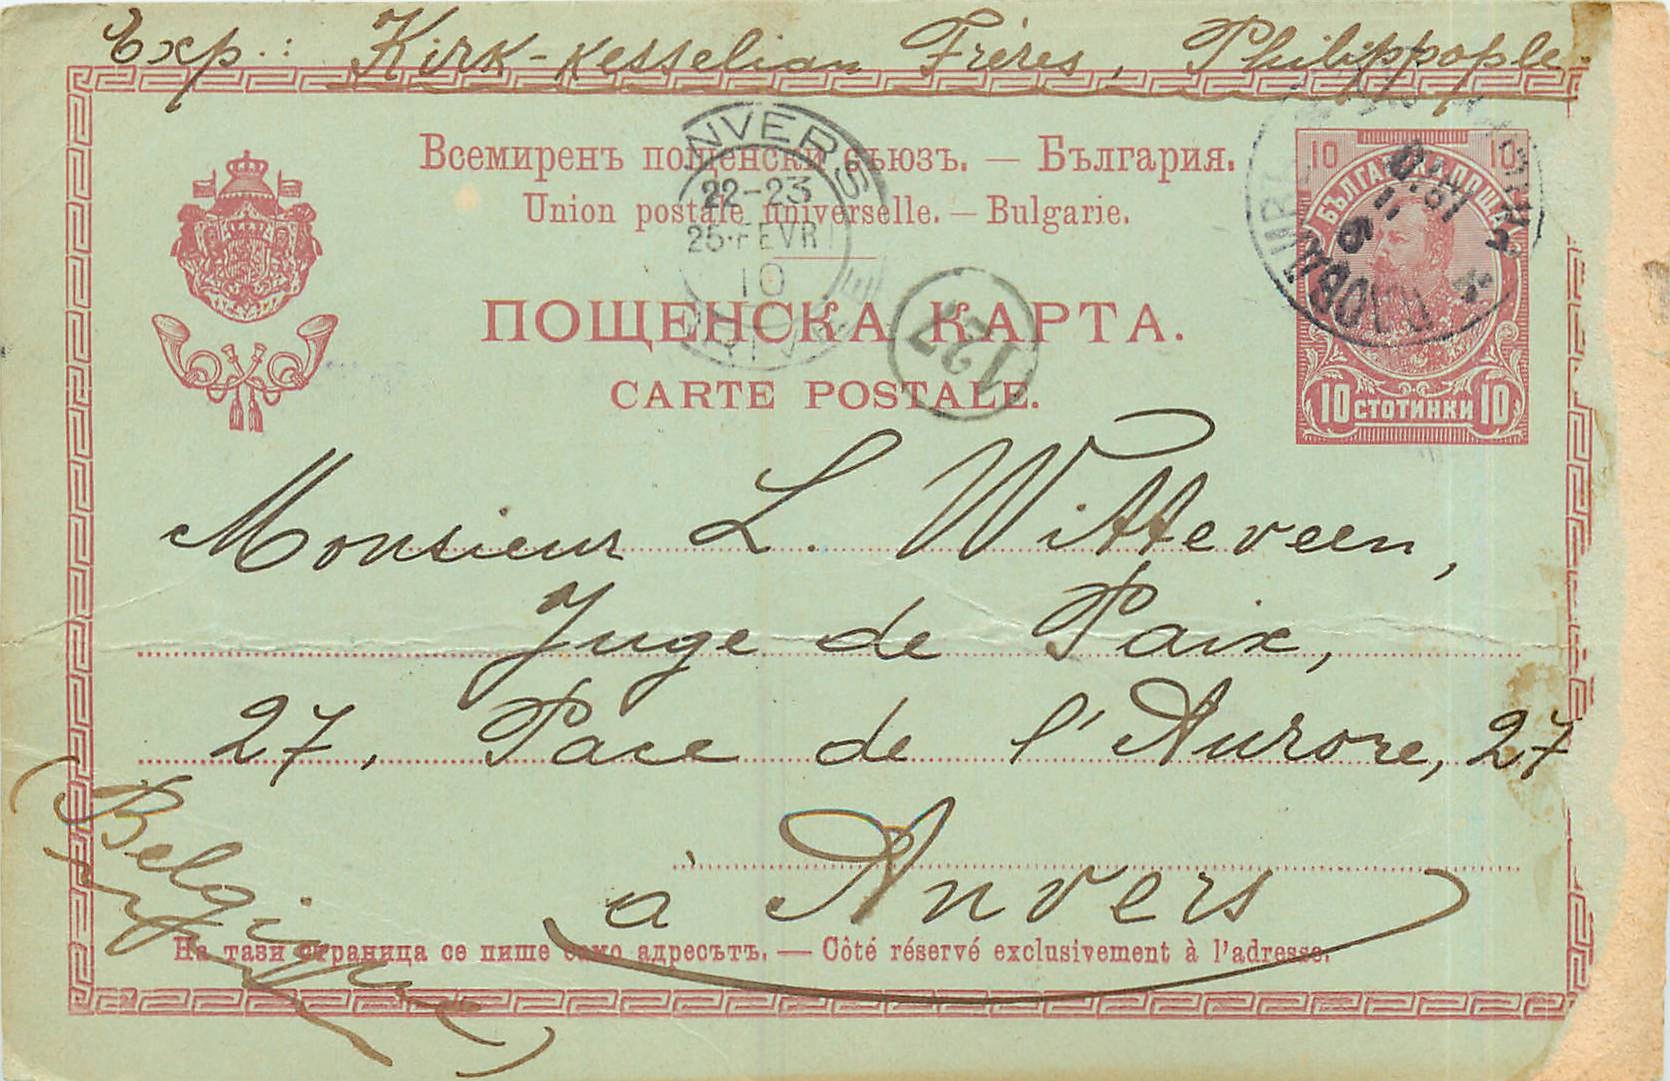 Exp.: Kirk-Kesselian Frères, Philippople.
Всемиренъ пощенски съюзъ. — България.
Union postale universelle. — Bulgarie.
ПОЩЕНСКА КАРТА.
CARTE POSTALE.
10 10
БЪЛГАРСКА ПОЩА
10 СТОТИНКИ 10
NVERS
22-23
25·FEVR
10
127
Monsieur L. Witteveen,
Juge de Paix,
27, Pace de l'Aurore, 27
à Anvers
(Belgique)
На тази страница се пише само адресътъ. — Côté réservé exclusivement à l'adresse.